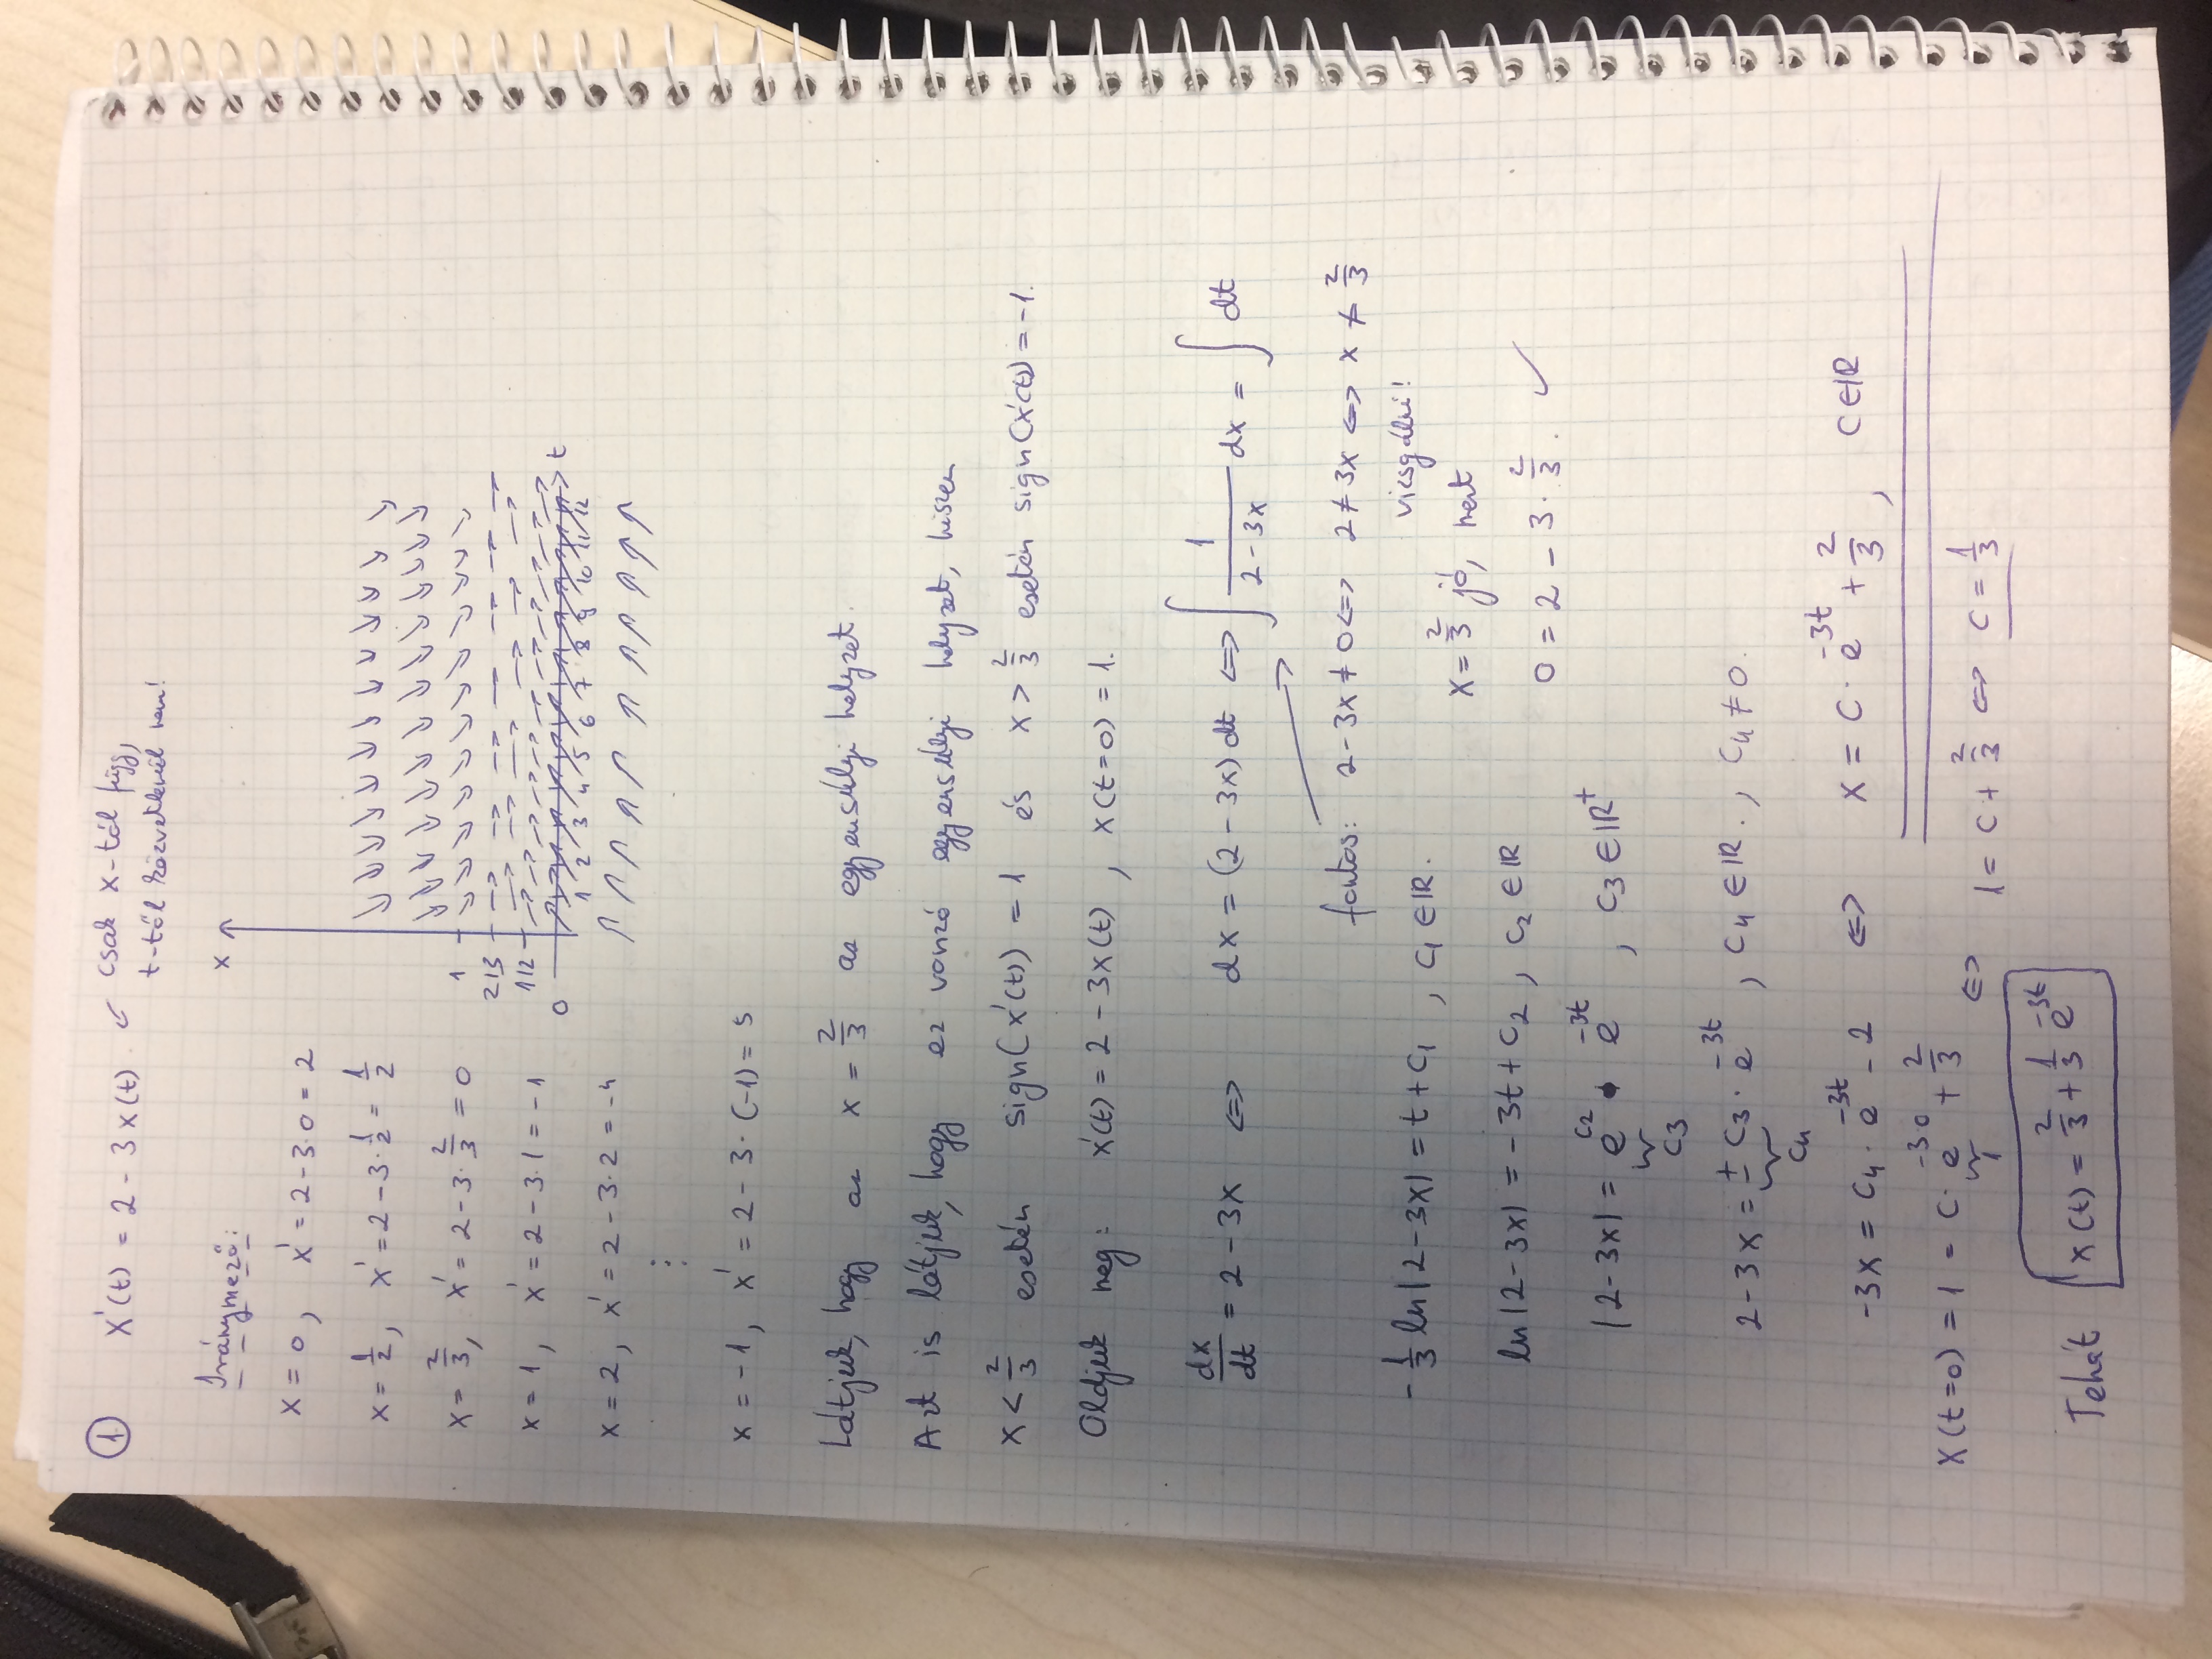 ① x'(t) = 2 - 3x(t). ↙ csak x-től függ,
t-től közvetlenül nem!
Iránymező:
x = 0, x' = 2 - 3·0 = 2
x = 1/2, x' = 2 - 3·1/2 = 1/2
x = 2/3, x' = 2 - 3·2/3 = 0
x = 1, x' = 2 - 3·1 = -1
x = 2, x' = 2 - 3·2 = -4
⋮
x = -1, x' = 2 - 3·(-1) = 5
x
1
2/3
1/2
0
1 2 3 4 5 6 7 8 9 10 11 12 t
Látjuk, hogy az x = 2/3 az egyensúlyi helyzet.
Azt is látjuk, hogy ez vonzó egyensúlyi helyzet, hiszen
x < 2/3 esetén sign(x'(t)) = 1 és x > 2/3 esetén sign(x'(t)) = -1.
Oldjuk meg: x'(t) = 2 - 3x(t), x(t=0) = 1.
dx/dt = 2 - 3x ⇔ dx = (2 - 3x)dt ⇔ ∫ 1/(2 - 3x) dx = ∫ dt
fontos: 2 - 3x ≠ 0 ⇔ 2 ≠ 3x ⇔ x ≠ 2/3
vizsgálni!
-1/3 ln|2 - 3x| = t + c₁, c₁ ∈ ℝ.
x = 2/3 jó, mert
ln|2 - 3x| = -3t + c₂, c₂ ∈ ℝ
0 = 2 - 3·2/3. ✓
|2 - 3x| = e^c₂ · e^-3t, c₃ ∈ ℝ⁺
c₃
2 - 3x = ± c₃ · e^-3t, c₄ ∈ ℝ., c₄ ≠ 0.
c₄
-3x = c₄ · e^-3t - 2 ⇔ x = c · e^-3t + 2/3, c ∈ ℝ
x(t=0) = 1 = c · e^-3·0 + 2/3 ⇔ 1 = c + 2/3 ⇔ c = 1/3
1
Tehát x(t) = 2/3 + 1/3 e^-3t